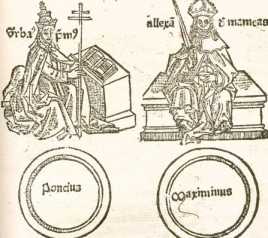 Vrba pm9
allexā & mameas
poncius
Maximinus